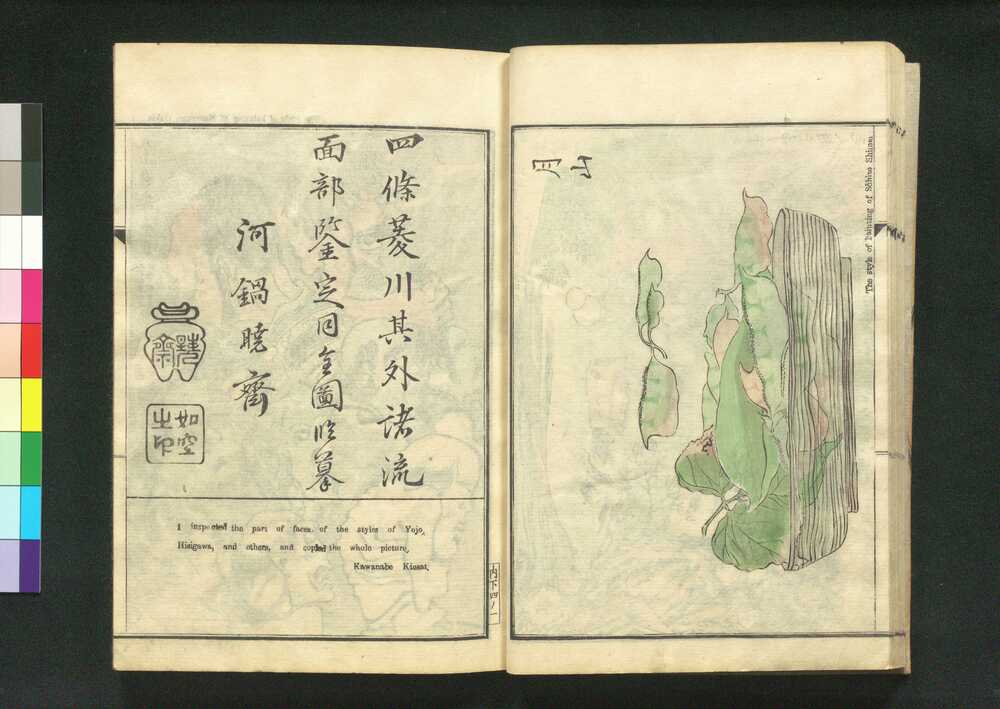 The style of Painting of Sōhino Shiuon
月山
四條菱川其外諸流
面部鑒定同全圖臨摹
河鍋曉齋
如空
之印
I inspected the part of faces of the styles of Yojo,
Hisigawa, and others, and copied the whole picture,
Kawanabe Kiosai.
内下四ノ一